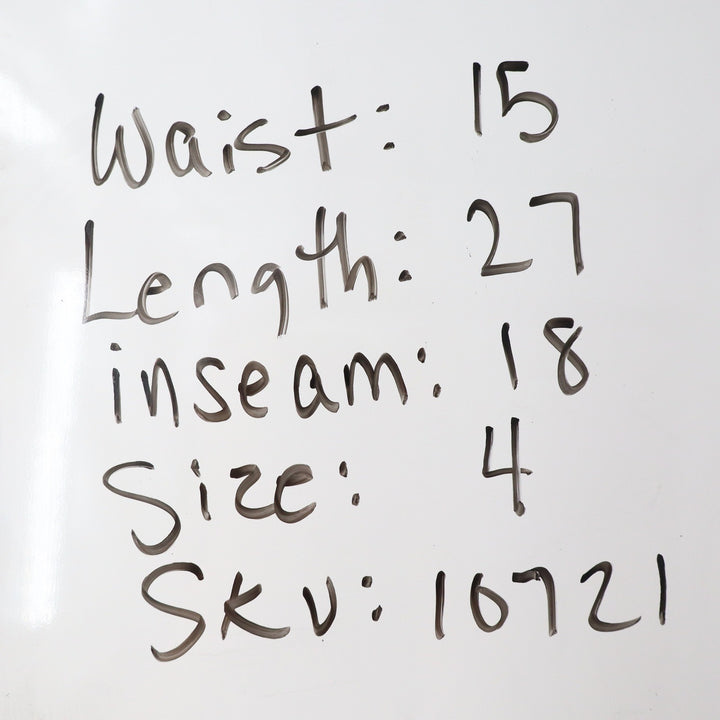 Waist: 15
Length: 27
inseam: 18
Size: 4
SKU: 10721